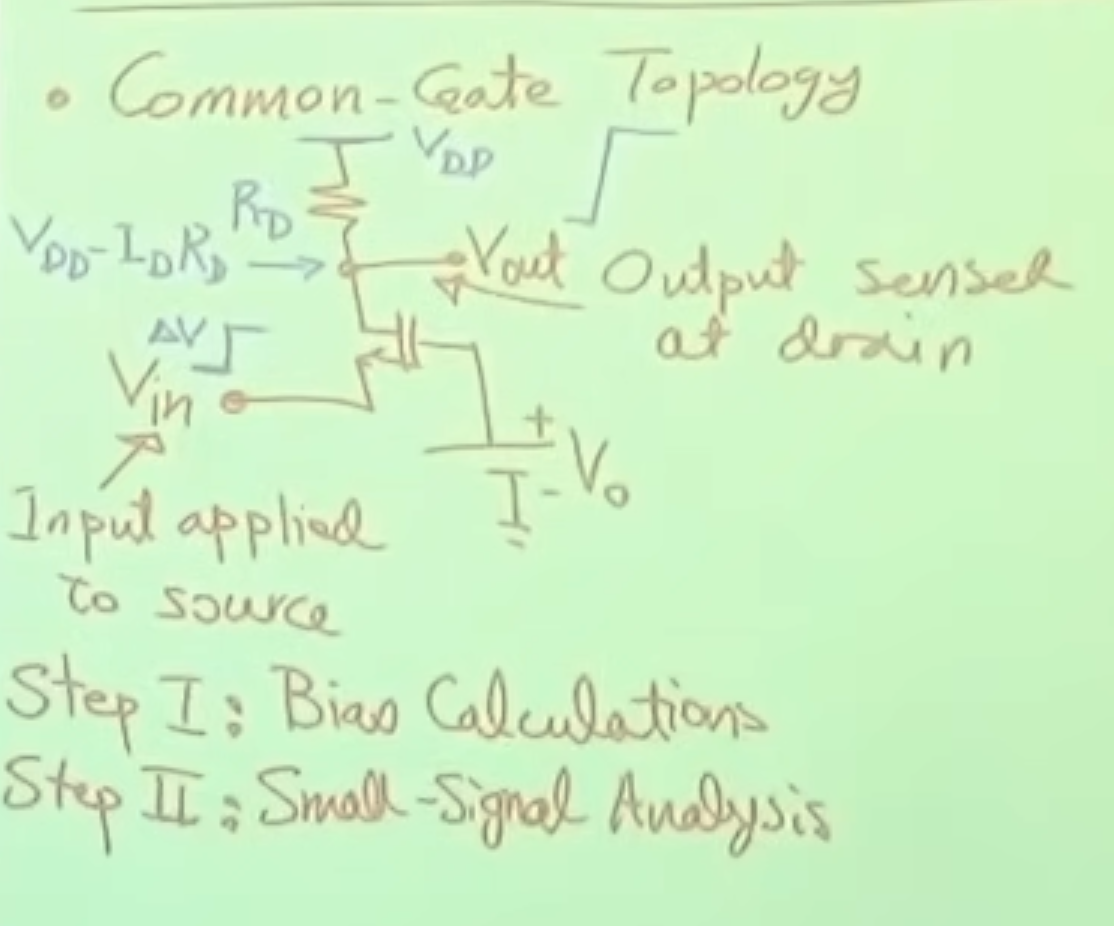 • Common-Gate Topology
VDD
RD
VDD-IDRD → Vout Output sensed
at drain
ΔV
Vin
+
- Vo
Input applied
to source
Step I: Bias Calculations
Step II: Small-Signal Analysis